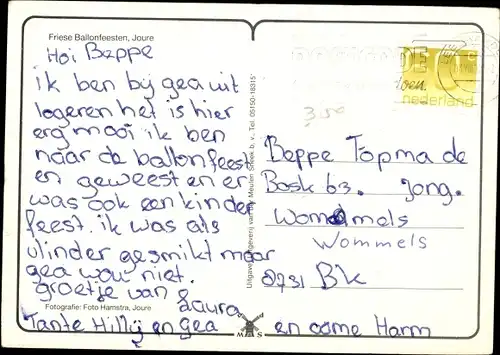 Friese Ballonfeesten, Joure
Hoi Beppe
ik ben bij gea uit
logeren het is hier
erg mooi ik ben
naar de ballon feest
en geweest en er
was ook een kinder
feest. ik was als
vlinder gesmikt maar
gea wou niet.
groetje van
Laura
Tante Hilly en Gea
en oome Harm
Fotografie: Foto Hamstra, Joure
Tel. 05150-18315
3,50
nederland
Beppe Topma de
Bosk 63. Jong.
Wommels
Wommels
8731 BK
M S